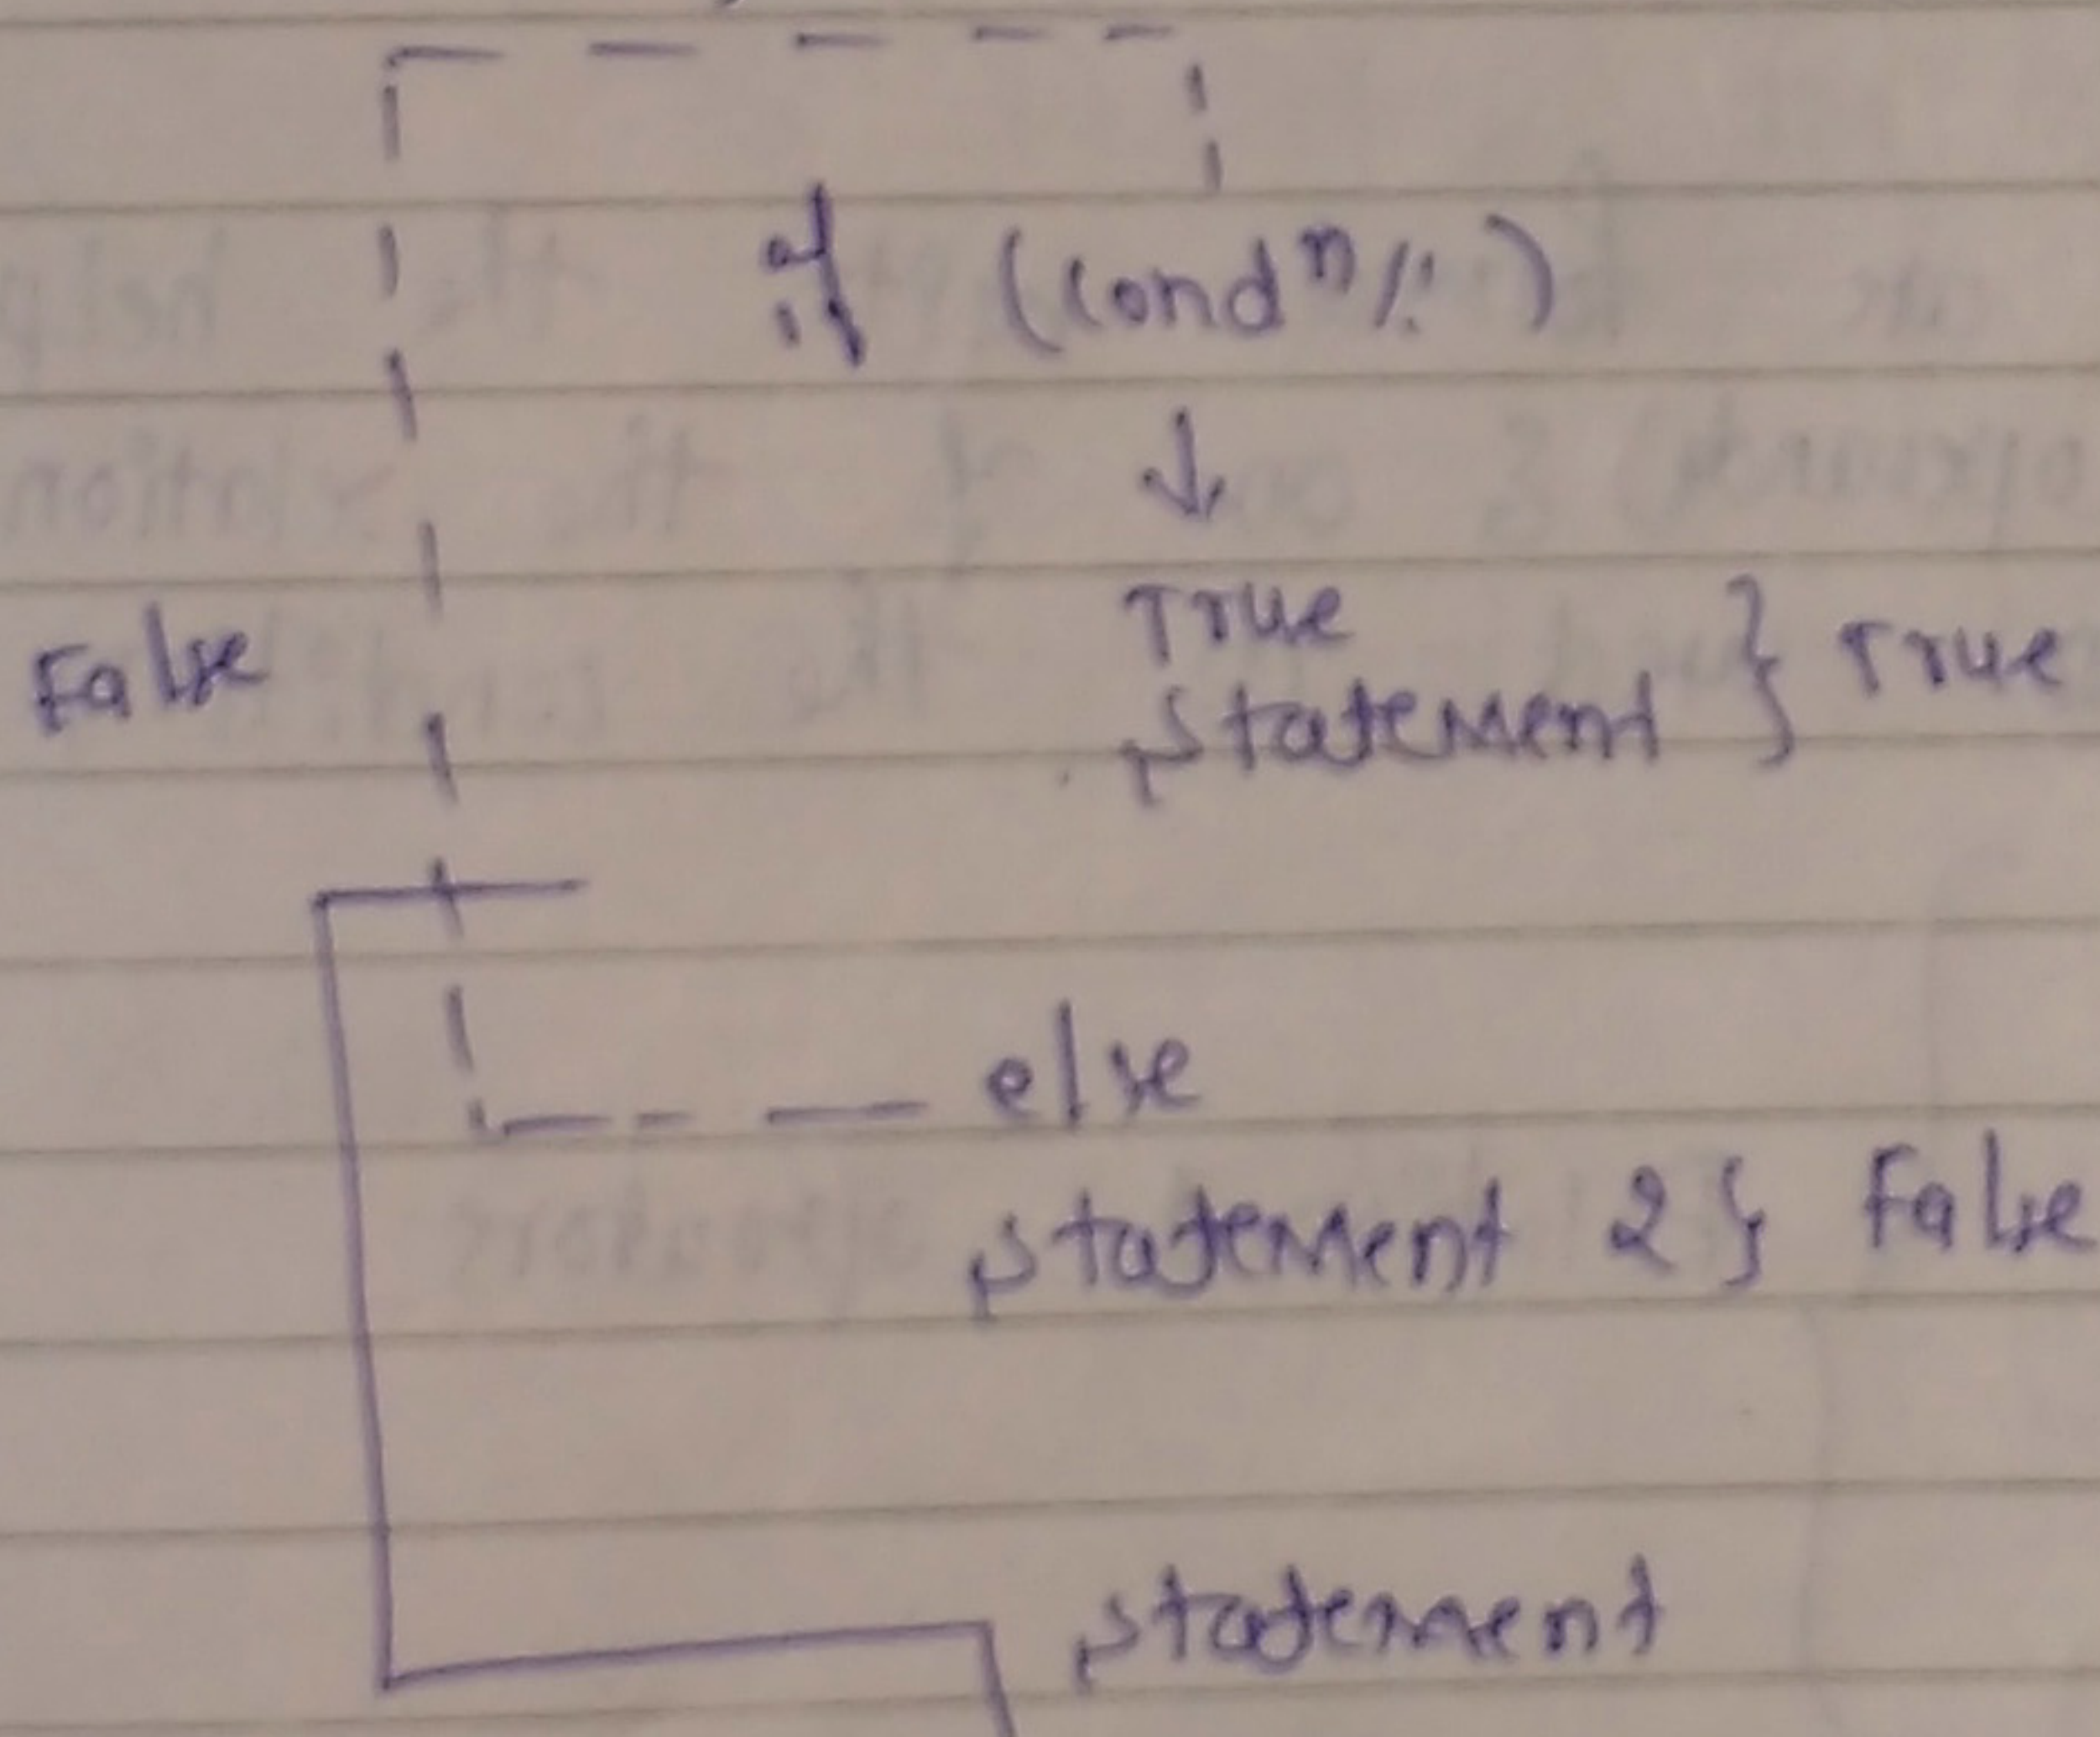 if (condⁿ/: )
True
False
statement } True
else
statement 2 } False
statement